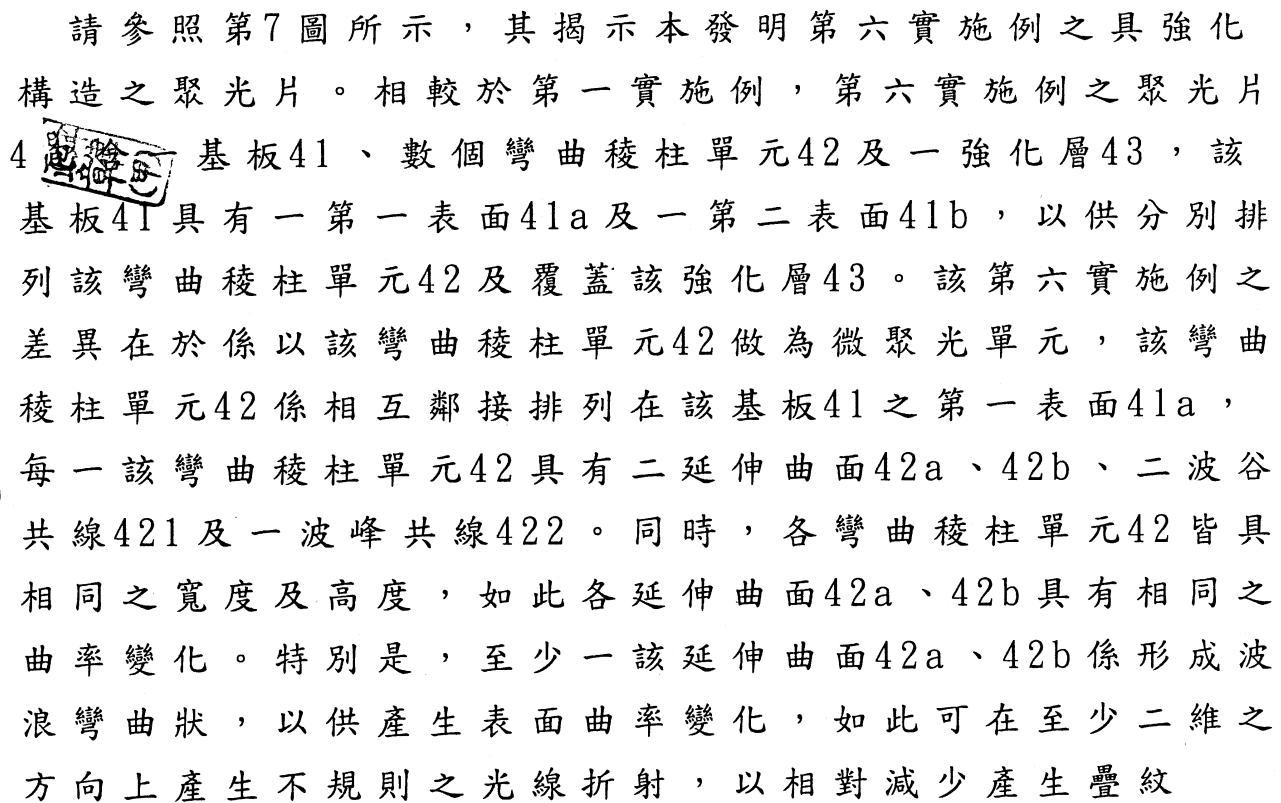 請參照第7圖所示，其揭示本發明第六實施例之具強化
構造之聚光片。相較於第一實施例，第六實施例之聚光片
4 基板41、數個彎曲稜柱單元42及一強化層43，該
基板41具有一第一表面41a及一第二表面41b，以供分別排
列該彎曲稜柱單元42及覆蓋該強化層43。該第六實施例之
差異在於係以該彎曲稜柱單元42做為微聚光單元，該彎曲
稜柱單元42係相互鄰接排列在該基板41之第一表面41a，
每一該彎曲稜柱單元42具有二延伸曲面42a、42b、二波谷
共線421及一波峰共線422。同時，各彎曲稜柱單元42皆具
相同之寬度及高度，如此各延伸曲面42a、42b具有相同之
曲率變化。特別是，至少一該延伸曲面42a、42b係形成波
浪彎曲狀，以供產生表面曲率變化，如此可在至少二維之
方向上產生不規則之光線折射，以相對減少產生疊紋